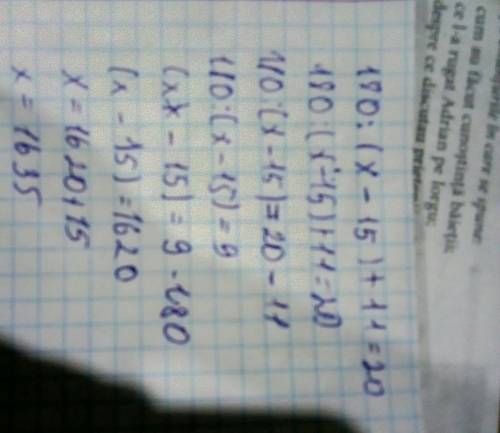 în care se spune:
cum au făcut cunoștință băieții;
ce l-a rugat Adrian pe Iorgu;
despre ce discutau
180:(x-15)+11=20
180:(x-15)+11=20
180:(x-15)=20-11
180:(x-15)=9
(x-15)=9·180
(x-15)=1620
x=1620+15
x=1635